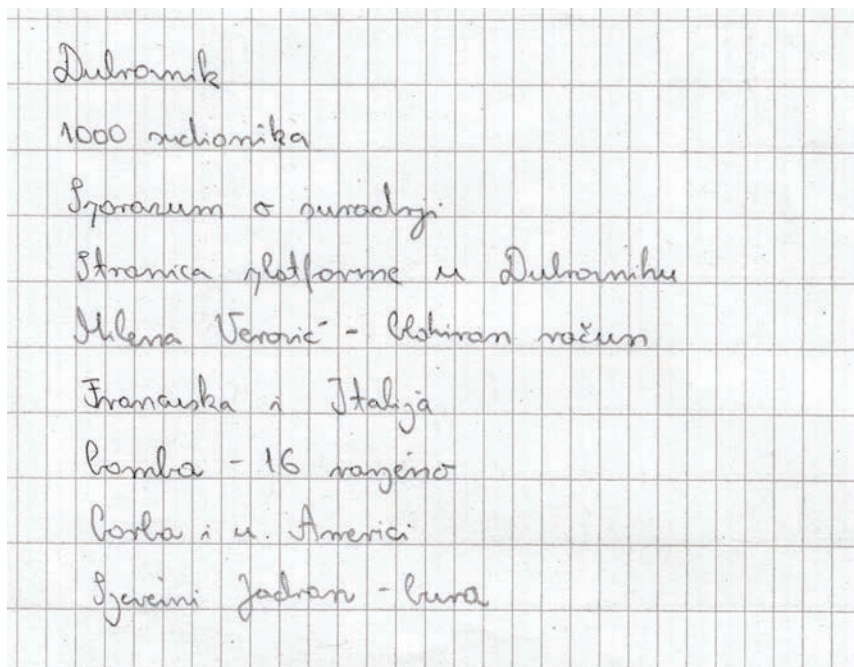 Dubrovnik
1000 sudionika
Sporazum o suradnji
Stranica platforme u Dubrovniku
Milena Verović - blokiran račun
Francuska i Italija
bomba - 16 ranjeno
borba i u Americi
Sjeverni Jadran - bura